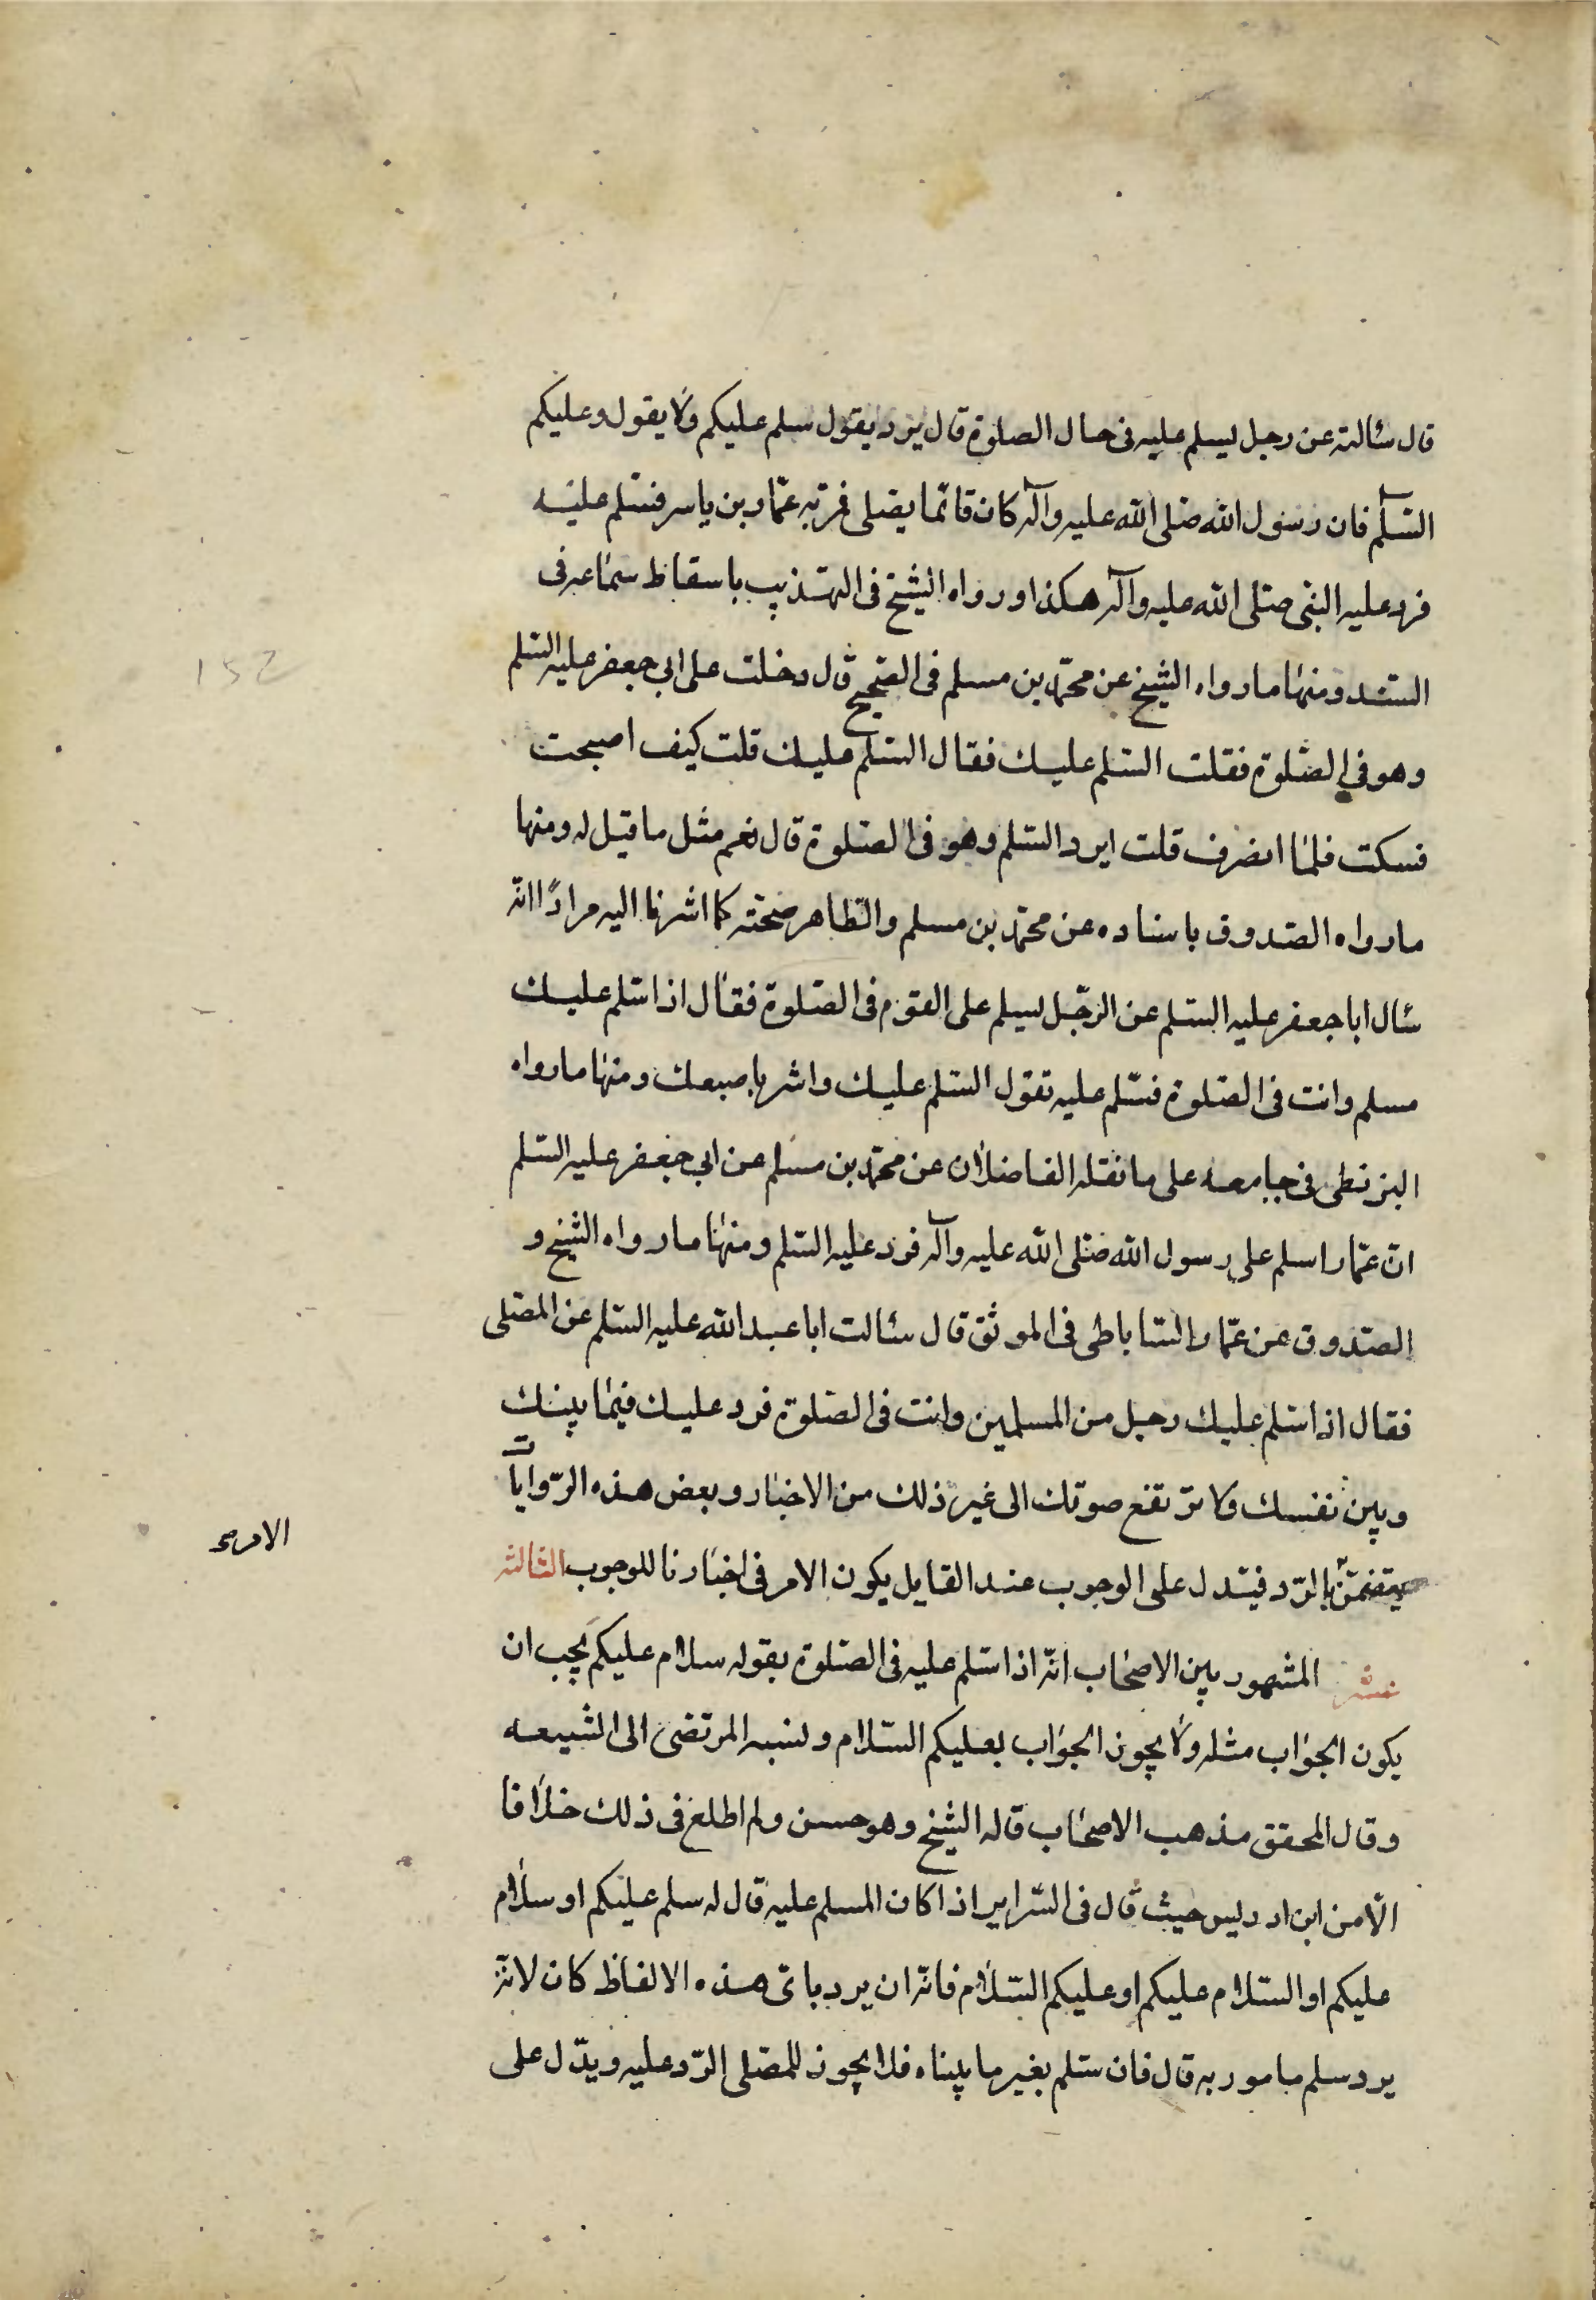 قال سئالته عن رجل يسلم عليه فى حال الصلوة قال يرد يقول سلم عليكم ولا يقول وعليكم
السّلم فان رسول الله صلى الله عليه وآله كان قائما يصلى فمرّ به عمّار بن ياسر فسّلم عليه
فرد عليه النبى صلى الله عليه وآله هكذا ورواه الشيخ فى التهذيب باسقاط سماعه فى
السّند ومنها ما رواه الشيخ عن محمّد بن مسلم فى الصّحيح قال دخلت على ابى جعفر عليه السّلم
وهو فى الصّلوة فقلت السّلم عليك فقال السّلم عليك قلت كيف اصبحت
فسكت فلمّا انصرف قلت ايرد السّلم وهو فى الصّلوة قال نعم مثل ما قيل له ومنها
ما رواه الصّدوق باسناده عن محمّد بن مسلم والظاهر صحّته كما اشرنا اليه مرارًا انّه
سئال ابا جعفر عليه السّلم عن الرّجل يسلم على القوم فى الصّلوة فقال اذا سّلم عليك
مسلم وانت فى الصّلوة فسّلم عليه تقول السّلم عليك واشر باصبعك ومنها ما رواه
البزنطى فى جامعه على ما نقله الفاضلان عن محمّد بن مسلم عن ابى جعفر عليه السّلم
انّ عمّارا سلم على رسول الله صّلى الله عليه وآله فرد عليه السّلم ومنها ما رواه الشيخ و
الصّدوق عن عمّار السّاباطى فى الموثق قال سئالت ابا عبد الله عليه السّلم عن المصّلى
فقال اذا سّلم عليك رجل من المسلمين وانت فى الصّلوة فرد عليك فيما بينك
وبين نفسك ولا ترتفع صوتك الى غير ذلك من الاخبار وبعض هذه الرّوايات
يتضمّن بالرّد فيدل على الوجوب عند القايل يكون الامر فى اخبارنا للوجوب الثالثه
الامر
عشر المشهور بين الاصحاب انّه اذا سّلم عليه فى الصّلوة بقوله سلام عليكم يجب ان
يكون الجواب مثله ولا يجوز الجواب بعليكم السّلام ونسبه المرتضى الى الشيعه
وقال المحقق مذهب الاصحاب قاله الشيخ وهو حسن ولم اطلع فى ذلك خلافا
الّا من ابن ادريس حيث قال فى السّراير اذا كان المسلم عليه قال له سلم عليكم او سلام
عليكم او السّلام عليكم او عليكم السّلام فانّه ان يرد باىّ هذه الالفاظ كان لانّه
يرد سلم مامور به قال فان سّلم بغير ما بيناه فلا يجوز للمصّلى الرّد عليه ويدّل على